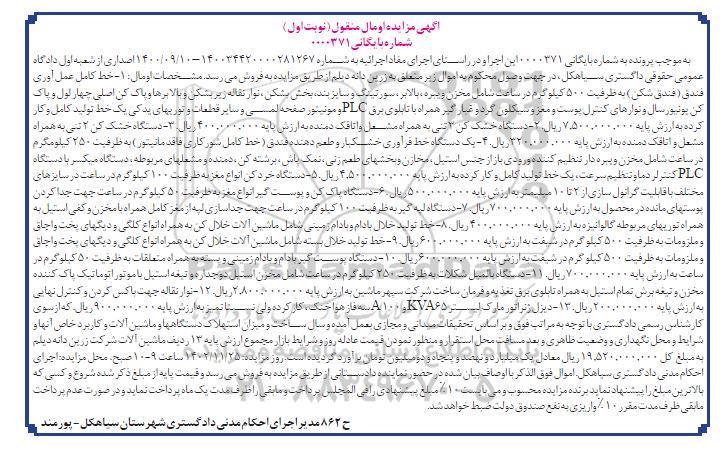 آگهی مزایده اموال منقول (نوبت اول)
شماره بایگانی ۰۰۰۰۳۷۱
به موجب پرونده به شماره بایگانی ۰۰۰۰۳۷۱ این اجرا و در راستای اجرای مفاد اجرائیه به شماره ۱۴۰۰۳۴۴۲۰۰۰۰۲۸۱۲۶۷-۱۴۰۰/۰۹/۱۰ اصداری از شعبه اول دادگاه
عمومی حقوقی دادگستری سیاهکل، در جهت وصول محکوم به اموال زیر متعلق به زرین دانه دیلم از طریق مزایده به فروش می رسد. مشخصات اموال: ۱-خط کامل عمل آوری
فندق (فندق شکن) به ظرفیت ۵۰۰ کیلوگرم در ساعت شامل مخزن ویبره، بالابر، سورتینگ و سایزبند، بخش بشکن، نوار نقاله زیر بشکن و بالابرها و پاک کن اصلی چهار لول و پاک
کن یونیورسال و نوارهای کنترل پوست و مغز و سیکلون گرد و غبار گیر همراه با تابلوی برق PLC و مونیتور صفحه لمسی و سایر قطعات و توریهای یدکی یک خط تولید کامل و کار
کرده به ارزش پایه ۷،۵۰۰،۰۰۰،۰۰۰ ریال. ۲-دستگاه خشک کن ۳ تنی به همراه مشعل و اتاقک دمنده به ارزش پایه ۴۰۰،۰۰۰،۰۰۰ ریال. ۳-دستگاه خشک کن ۲ تنی به همراه
مشعل و اتاقک دمنده به ارزش پایه ۳۲۰،۰۰۰،۰۰۰ ریال. ۴-یک دستگاه خط فرآوری خشکبار و طعم دهنده فندق (خط کامل شور کاری فاقد مانیتور) به ظرفیت ۲۵۰ کیلومگرم
در ساعت شامل مخزن ویبره دار تنظیم کننده ورودی بار از جنس استیل، مخازن وبخشهای طعم زنی، نمک پاش، برشته کن، دمنده و مشعلهای مربوطه، دستگاه میکسر با دستگاه
PLC کنترلر دما و تنظیم سرعت، یک خط تولید کامل و کار کرده به ارزش پایه ۴،۵۰۰،۰۰۰،۰۰۰ ریال. ۵-دستگاه خرد کن انواع مغز به ظرفیت ۱۰۰ کیلوگرم در ساعت در سایزهای
مختلف با قابلیت گرانول سازی از ۲ تا ۱۰ میلیمتر به ارزش پایه ۵۰۰،۰۰۰،۰۰۰ ریال. ۶-دستگاه پاک کن و پوست گیر انواع مغز به ظرفیت ۵۰ کیلوگرم در ساعت جهت جدا کردن
پوستهای مانده در محصول به ارزش پایه ۷۰۰،۰۰۰،۰۰۰ ریال. ۷-دستگاه لپه گیر به ظرفیت ۱۰۰ کیلوگرم در ساعت جهت جداسازی لپه از مغز کامل همراه با مخزن و کفی استیل به
همراه توریهای مربوطه گالوانیزه به ارزش پایه ۴۰۰،۰۰۰،۰۰۰ ریال. ۸-خط تولید خلال بادام و بادام زمینی شامل ماشین آلات خلال کن به همراه انواع کلگی و دیگهای پخت و اجاق
و ملزومات به ظرفیت ۵۰۰ کیلوگرم در شیفت به ارزش پایه ۶۰۰،۰۰۰،۰۰۰ ریال. ۹-خط تولید خلال پسته شامل ماشین آلات خلال کن به همراه انواع کلگی و دیگهای پخت و اجاق
و ملزومات به ظرفیت ۵۰۰ کیلوگرم در شیفت به ارزش پایه ۶۰۰،۰۰۰،۰۰۰ ریال. ۱۰-دستگاه پوست گیر بادام و بادام زمینی و پسته به همراه متعلقات به ظرفیت ۵۰ کیلوگرم در
ساعت به ارزش پایه ۷۰۰،۰۰۰،۰۰۰ ریال. ۱۱-دستگاه بالمیل شکلات به ظرفیت ۲۵۰ کیلوگرم در ساعت شامل مخزن استیل دوجداره و تیغه استیل با موتور اتوماتیک پاک کننده
مخزن و تیغه برش تمام استیل به همراه تابلوی برق تغذیه و فرمان ساخت شرکت سپهر ماشین به ارزش پایه ۲،۸۰۰،۰۰۰،۰۰۰ ریال. ۱۲-نوار نقاله جهت باکس کردن و کنترل نهایی
به ارزش پایه ۲۰۰،۰۰۰،۰۰۰ ریال. ۱۳-دیزل ژنراتور مارک لیستر KVA۶۵ و A۱۰۰ سه فاز هواخنک، کار کرده ولی نیستا تمیز به ارزش پایه ۹۰۰،۰۰۰،۰۰۰ ریال. که از سوی
کارشناس رسمی دادگستری با توجه به مراتب فوق و بر اساس تحقیقات میدانی و مجازی بعمل آمده و سال ساخت و میزان استهلاک دستگاهها و ماشین آلات و کاربرد خاص آنها و
شرایط و محل نگهداری و وضعیت ظاهری و بعد مسافت محل استقرار و منظور نمودن قیمت عادله روز و شرایط بازار مجموع ارزش پایه ۱۳ ردیف ماشین آلات شرکت زرین دانه دیلم
به مبلغ کل ۱۹،۵۲۰،۰۰۰،۰۰۰ ریال معادل یک میلیارد و نهصد و پنجاه و دو میلیون تومان برآورد گردیده است. روز مزایده: ۱۴۰۲/۱۱/۲۵ ساعت ۹-۱۰ صبح. محل مزایده: اجرای
احکام مدنی دادگستری سیاهکل. اموال فوق الذکر با اوصاف بیان شده در حضور نماینده دادستانی از طریق مزایده به فروش می رسد و قیمت پایه از مبلغ ذکر شده شروع و کسی که
بالاترین مبلغ را پیشنهاد نماید برنده مزایده محسوب و می بایست ۱۰٪ مبلغ پیشنهادی را فی المجلس پرداخت و مابقی را ظرف مدت یک ماه پرداخت نماید و در صورت عدم پرداخت
مابقی ظرف مدت مقرر ۱۰٪ واریزی به نفع صندوق دولت ضبط خواهد شد.
ح ۸۶۲ مدیر اجرای احکام مدنی دادگستری شهرستان سیاهکل - پورمند